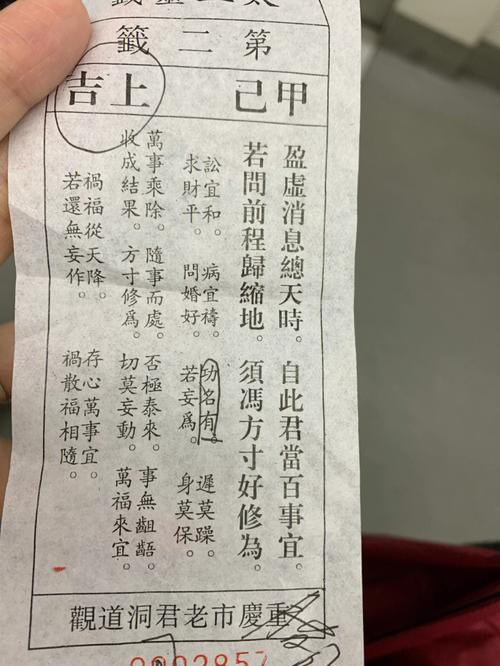 第二籤
甲己
上吉
盈虛消息總天時。自此君當百事宜。
若問前程歸縮地。須馮方寸好修為。
訟宜和。病宜禱。功名有。遲莫躁。
求財平。問婚好。若妄為。身莫保。
萬事乘除。隨事而處。否極泰來。事無齟齬。
收成結果。方寸修為。切莫妄動。萬福來宜。
禍福從天降。存心萬事宜。
若還無妄作。禍散福相隨。
重慶市老君洞道觀